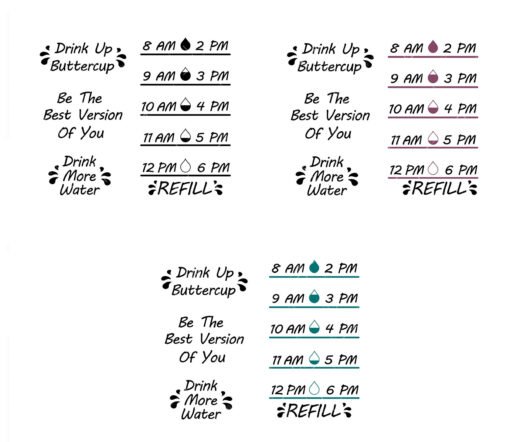 Drink Up
Buttercup
Be The
Best Version
Of You
Drink
More
Water
8 AM 2 PM
9 AM 3 PM
10 AM 4 PM
11 AM 5 PM
12 PM 6 PM
REFILL
Drink Up
Buttercup
Be The
Best Version
Of You
Drink
More
Water
8 AM 2 PM
9 AM 3 PM
10 AM 4 PM
11 AM 5 PM
12 PM 6 PM
REFILL
Drink Up
Buttercup
Be The
Best Version
Of You
Drink
More
Water
8 AM 2 PM
9 AM 3 PM
10 AM 4 PM
11 AM 5 PM
12 PM 6 PM
REFILL